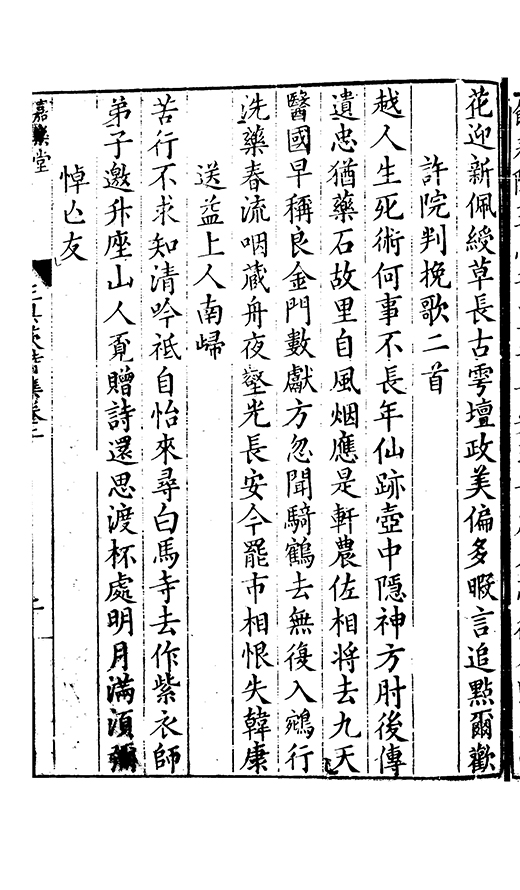 花迎新佩綬草長古雩壇政美偏多暇言追點爾歡
許院判挽歌二首
越人生死術何事不長年仙跡壺中隱神方肘後傳
遺忠猶藥石故里自風烟應是軒農佐相將去九天
醫國早稱良金門數獻方忽聞騎鶴去無復入鵷行
洗藥春流咽藏舟夜壑光長安今罷市相恨失韓康
送益上人南歸
苦行不求知清吟祗自怡來尋白馬寺去作紫衣師
弟子邀升座山人覔贈詩還思渡杯處明月滿須彌
悼亾友
嘉業堂